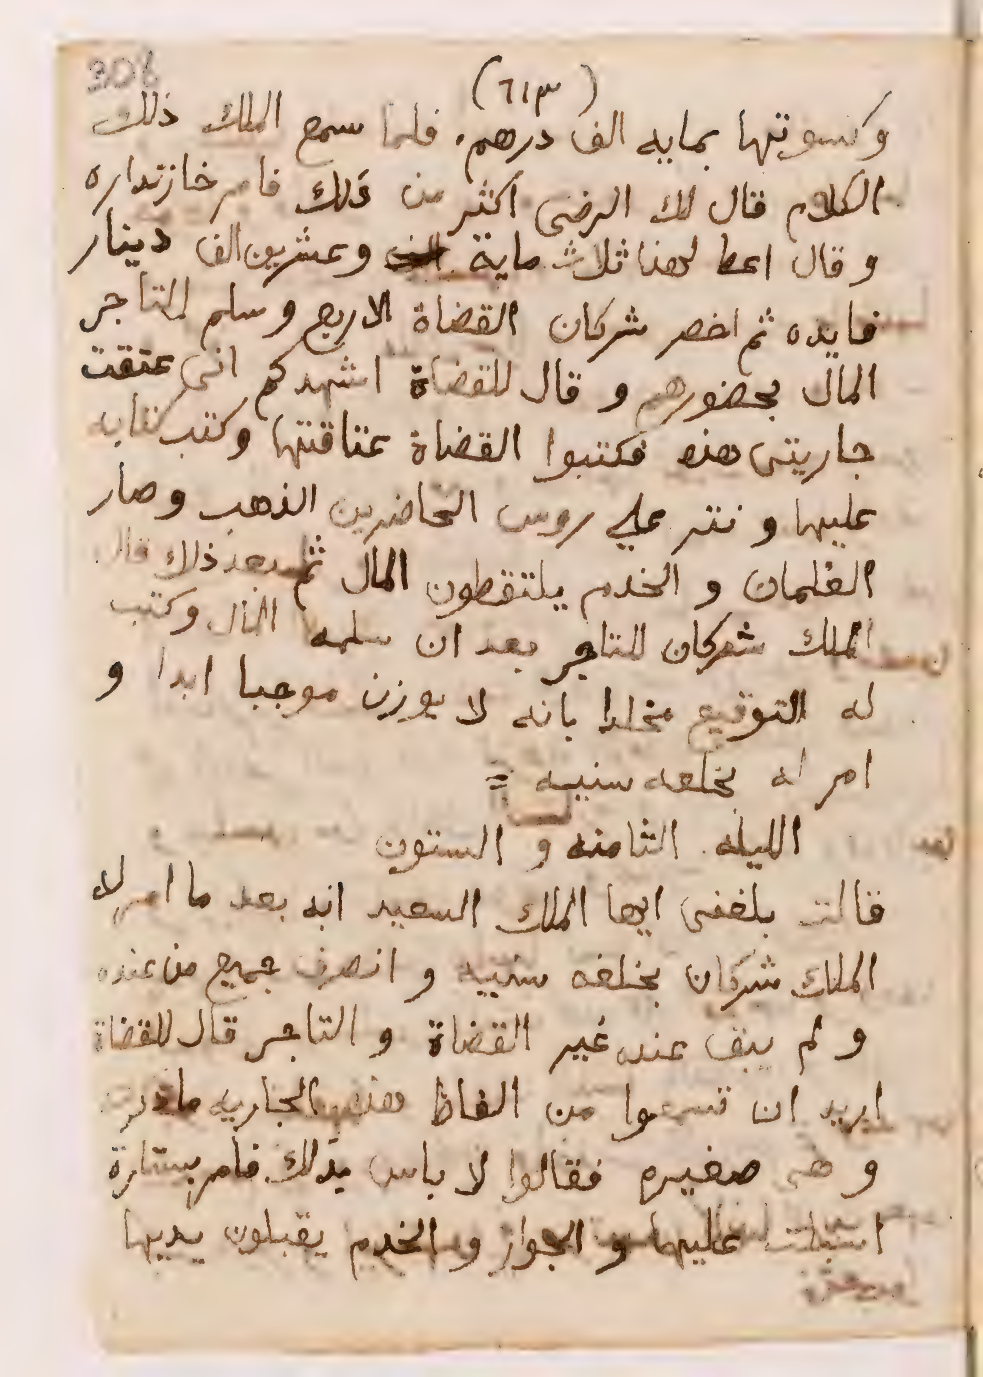 308
(٦١٣)
وكسوتها بمايه الف درهم. فلما سمع الملك ذلك
الكلام قال لك الرضى اكثر من ذلك فامر خازنداره
و قال اعط لهذا ثلاث ماية وعشرين الف دينار
فايده ثم احضر شركان القضاة الاربع و سلم للتاجر
المال بحضورهم و قال للقضاة اشهدكم انى عتقت
جاريتى هذه فكتبوا القضاة عتاقتها وكتب كتابه
عليها و نثر علي روس الحاضرين الذهب وصار
الغلمان و الخدم يلتقطون المال ثم بعد ذلك قال
الملك شركان للتاجر بعد ان سلمه المال وكتب
له التوقيع مخلدا بانه لا يوزن موجبا ابدا و
امر له بخلعه سنيه =
الليله الثامنه و الستون
قالت بلغنى ايها الملك السعيد انه بعد ما امر له
الملك شركان بخلعه سنييه و انصرف جميع من عنده
و لم يبق عنده غير القضاة و التاجر قال للقضاة
اريد ان تسمعوا من الفاظ هذه الجاريه ما
و هى صغيره فقالوا لا باس بذلك فامر بستارة
اسبلت عليها و الجوار و الخدم يقبلون يديها